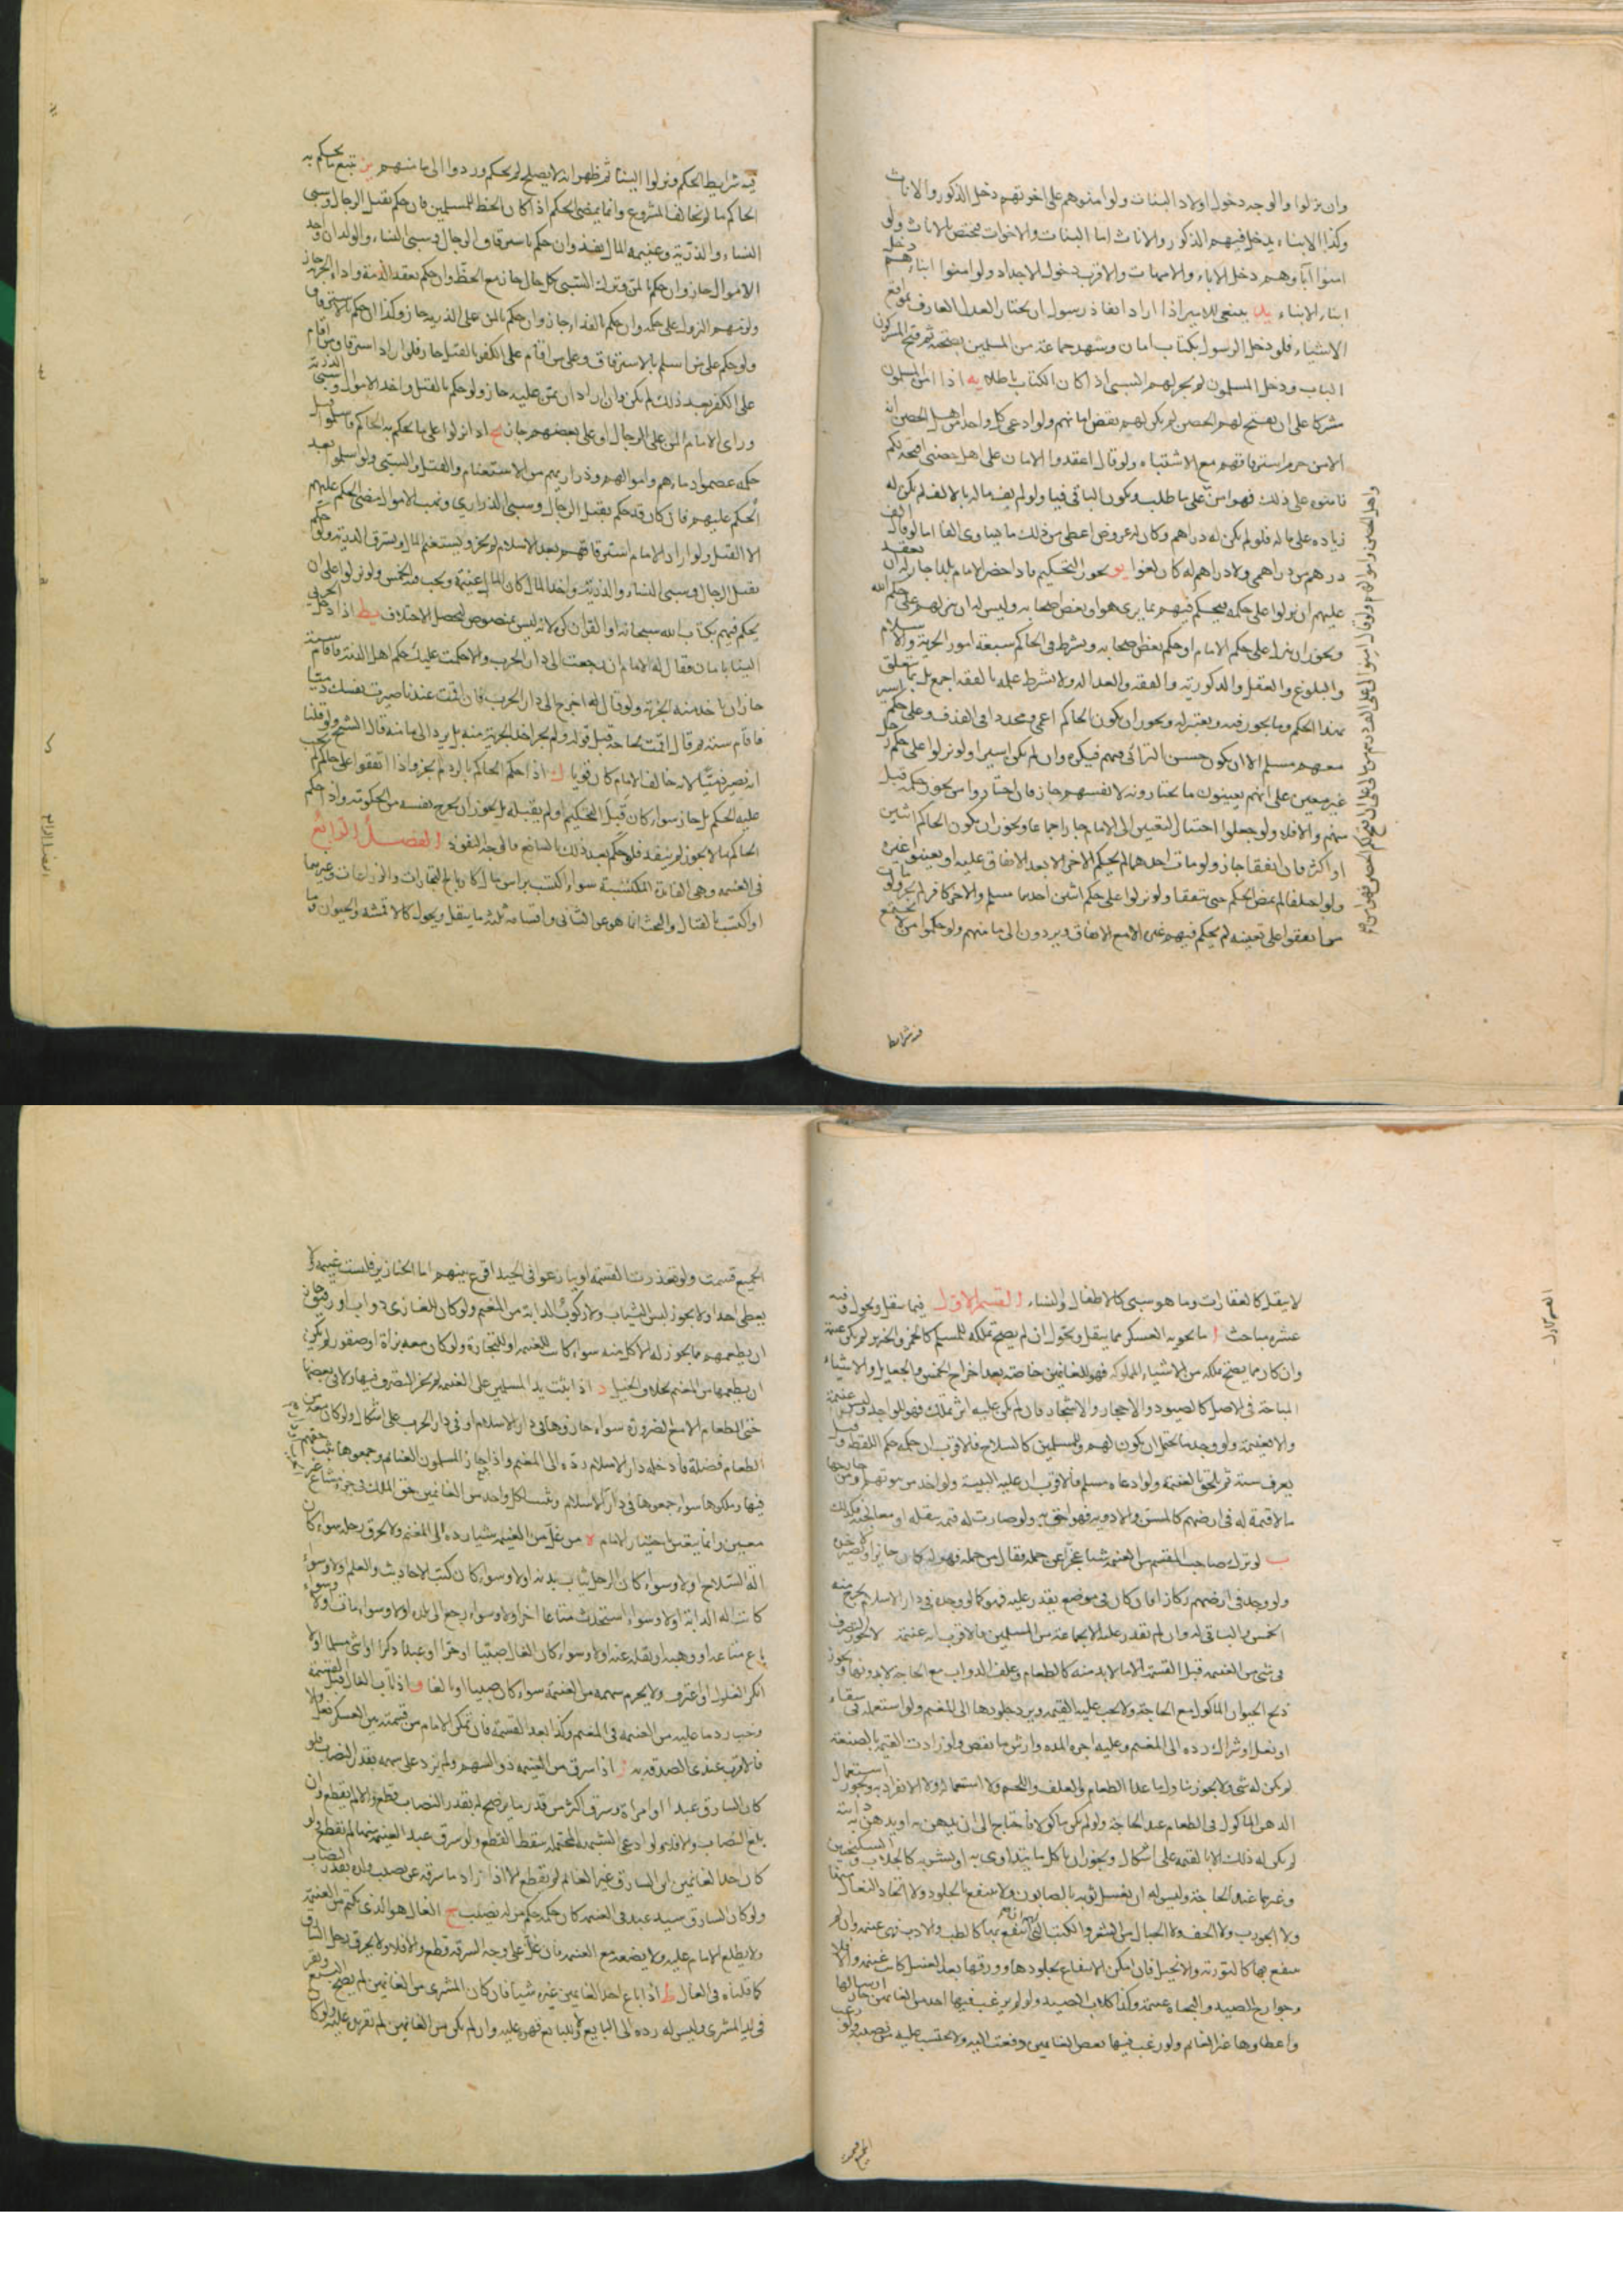 وان نزلوا والوجه دخول اولاد البنات ولو امنوهم على اخوتهم دخل الذكور والاناث
وكذا الابناء يدخل فيهم الذكور والاناث اما البنات والاخوات فيختص بالاناث ولو
امنوا آباوهم دخل الاباء والامهات والاقرب دخول الاجداد ولو امنوا ابناءهم دخل
ابناء الابناء يد ينبغي للامير اذا اراد انفاذ رسول ان يختار العدل العارف بمواقع
الاشياء فلو دخل الرسول بكتاب امان وشهد جماعة من المسلمين بصحته ثم فتح المشركون
الباب ودخل المسلمون لم يجز لهم السبي اذا كان الكتاب باطلا يه اذا امن المسلمون
مشركا على ان يفتح لهم الحصن لم يكن لهم نقض امانهم ولو ادعى كل واحد من اهل الحصن انه
الامن حرم استرقاقهم مع الاشتباه ولو قال اعقدوا الامان على اهل حصني افتحه لكم
فامنوه على ذلك فهو امن على ما طلب ويكون الباقي فيئا ولو لم يف ماله بالالف لم يكن له
زيادة على ماله فلو لم يكن له دراهم وكان له عروض اعطي من ذلك ما يساوي الفا اما لو قال الف
درهم من دراهمي ولا دراهم له كان لغوا يو يجوز التحكيم فاذا حضر الامام بلدا جاز له ان يعقد
عليهم ان نزلوا على حكمه فيحكم فيهم بما يرى هو او بعض اصحابه وليس له ان ينزلهم على حكم الله
ويجوز ان ينزلوا على حكم الامام او حكم بعض اصحابه ويشترط في الحاكم سبعة امور الحرية والاسلام
والبلوغ والعقل والذكورية والفقه والعدالة ولا يشترط علمه بالفقه اجمع بل بما يتعلق
بهذا الحكم وما يجوز فيه ويعتبر له ويجوز ان يكون الحاكم اعمى ومحدودا في القذف وعلى حكم اسير
معهم مسلم الا ان يكون حسن الرائ فيهم فيكره وان لم يكن اسيرا ولو نزلوا على حكم رجل
غير معين على انهم يعينون ما يختارونه لانفسهم جاز فان اختاروا من يجوز حكمه قبل
منهم والا فلا ولو جعلوا اختيار التعيين الى الامام جاز اجماعا ويجوز ان يكون الحاكم اثنين
او اكثر فان اتفقا جاز ولو مات احدهما لم يحكم الاخر الا بعد الاتفاق عليه او يعينوا غيره
ولو اختلفا لم يمض الحكم حتى يتفقا ولو نزلوا على حكم اثنين احدهما مسلم والاخر كافر لم يجز ولو مات
من اتفقوا على تعيينه لم يحكم فيهم غيره الا مع الاتفاق ويردون الى مامنهم ولو حكموا من لا يجتمع
فيه شرايط
فيه شرايط الحكم ونزلوا الينا ثم ظهر انه لا يصلح لم يحكم وردوا الى مامنهم يز يتبع ما يحكم به
الحاكم ما لم يخالف المشروع وانما يمضي الحكم اذا كان الحظ للمسلمين فان حكم بقتل الرجال وسبي
النساء والذرية وغنيمة المال نفذ وان حكم باسترقاق الرجال وسبي النساء والولدان واخذ
الاموال جاز وان حكم بالمن وترك السبي بكل حال جاز مع الحظ وان حكم بعقد الذمة واداء الجزية جاز
ولزمهم النزول على حكمه وان حكم بالفداء جاز وان حكم بالمن على الذرية جاز وكذا ان حكم بالاسترقاق
ولو حكم على من اسلم بالاسترقاق وعلى من اقام على الكفر بالقتل جاز فلو اراد استرقاق من اقام
على الكفر بعد ذلك لم يكن وان اراد ان يمن عليه جاز ولو حكم بالقتل واخذ الاموال وسبي الذرية
وراى الامام المن على الرجال او على بعضهم جاز يح اذا نزلوا على ما يحكم به الحاكم فاسلموا قبل
حكمه عصموا دماءهم واموالهم وذراريهم من الاستغنام والقتل والسبي ولو اسلموا بعد
الحكم عليهم فان كان قد حكم بقتل الرجال وسبي الذراري ونهب الاموال مضى الحكم عليهم
الا القتل ولو اراد الامام استرقاقهم بعد الاسلام لم يجز ويستغنم المال ويسترق الذرية ولو حكم
بقتل الرجال وسبي النساء والذرية واخذ المال كان المال غنيمة ويجب فيه الخمس ولو نزلوا على ان
يحكم فيهم بكتاب الله سبحانه او القران كره لانه ليس بمنصوص فيحصل الاختلاف يط اذا دخل الحربي
الينا بامان فقال له الامام ان رجعت الى دار الحرب والا حكمت عليك حكم اهل الذمة فاقام سنة
جاز ان ياخذ منه الجزية ولو قال له اخرج الى دار الحرب فان اقمت عندنا صيرت نفسك ذميا
فاقام سنة ثم قال اقمت لحاجة قبل قوله ولم يجز اخذ الجزية منه بل يرد الى مامنه قال الشيخ ولو قلنا
انه يصير ذميا لانه خالف الامام كان قويا ك اذا حكم الحاكم بالرد لم يجز واذا اتفقوا على حاكم لم يجب
عليه الحكم بل جاز سواء كان قبل التحكيم او لم يقبله بل يجوز ان يخرج نفسه من الحكومة واذا حكم
الحاكم بما لا يجوز لم ينفذ فلو حكم بعد ذلك بالسائغ فالوجه النفوذ الفصل الرابع
في الغنيمة وهي الفائدة المكتسبة سواء اكتسب براس مال كارباح التجارات والزراعات وغيرهما
او اكتسب بالقتال والبحث انما هو عن الثاني واقسامه ثلثة ما ينقل ويحول كالاقمشة والحيوان وما
الفصل الرابع
لا ينقل كالعقارات وما هو سبي كالاطفال والنساء القسم الاول فيما ينقل ويحول وفيه
عشرة مباحث ا ما يحويه العسكر مما ينقل ويحول ان لم يصح تملكه للمسلم كالخمر والخنزير لم يكن غنيمة
وان كان مما يصح تملكه من الاشياء المملوكة فهو للغانمين خاصة بعد اخراج الخمس والجعايل والاشياء
المباحة في الاصل كالصيود والاحجار والاشجار فان لم يكن عليه اثر تملك فهو للواجد وليس غنيمة
والا فغنيمة ولو وجد ما يحتمل ان يكون لهم وللمسلمين كالسلاح فالاقرب ان حكمه حكم اللقطة وقيل
يعرف سنة ثم يلحق بالغنيمة ولو ادعاه مسلم فالاقرب ان عليه البينة ولو اخذ من بيوتهم
ما لا قيمة له في ارضهم كالمسن والادوية فهو احق به ولو صارت له قيمة بنقله او معالجته فكذلك
ب لو ترك صاحب المقسم من الغنيمة شيا عجزا عن حمله فقال من حمله فهو له كان جايزا
ولو وجد في ارضهم ركاز فان كان في موضع يقدر عليه فهو كما لو وجده في دار الاسلام يخرج منه
الخمس والباقي له وان لم يقدر عليه الا بجماعة من المسلمين فالاقرب انه غنيمة لا يجوز التصرف
في شئ من الغنيمة قبل القسمة الا ما لا بد منه كالطعام وعلف الدواب مع الحاجة لا بدونها ويجوز
ذبح الحيوان الماكول مع الحاجة ولا يجب عليه القيمة ويرد جلودها الى المغنم ولو استعمله في سقاء
او نعل او شراك رده الى المغنم وعليه اجرة المدة وارش ما نقص ولو زادت القيمة بالصنعة
لم يكن له شئ ولا يجوز تناول ما عدا الطعام والعلف واللحم ولا استعماله ولا الانفراد به ويجوز استعمال
الدهن الماكول في الطعام عند الحاجة ولو لم يكن ماكولا فاحتاج الى ان يدهن به او يدهن به دابته
لم يكن له ذلك الا بالقيمة على اشكال ويجوز ان ياكل ما يتداوى به او يشربه كالجلاب والسكنجبين
وغيرهما عند الحاجة وليس له ان يغسل ثوبه بالصابون ولا ينتفع بالجلود ولا اتخاذ النعال منها
ولا الجورب ولا الخف ولا الحبال من الشعر والكتب التي ينتفع بها كالطب والادب فهي غنيمة وان لم
ينتفع بها كالتورية والانجيل فان امكن الانتفاع بجلودها وورقها بعد الغسل كانت غنيمة والا فلا
وجوارح الصيد والبزاة غنيمة وكذا كلاب الصيد ولو لم يرغب فيها احد من الغانمين جاز ارسالها
واعطاوها غير الغانم ولو رغب فيها بعض الغانمين دفعت اليه ولا يحتسب عليه من نصيبه ولو رغب
الجميع قسمت
الجميع قسمت ولو تعذرت القسمة او تنازعوا في الجيد اقرع بينهم اما الخنازير فليست غنيمة ولا
يعطى احدا ولا يجوز لبس الثياب ولا ركوب الدابة من المغنم ولو كان للغازي دواب او رقيق جاز
ان يطعمهم مما يجوز له الاكل منه سواء كانت للغنيمة او للتجارة ولو كان معه بزاة او صقور لم يكن
ان يطعمها من المغنم بخلاف الخيل د اذا اثبت يد المسلمين على الغنيمة لم يجز التصرف فيها ولا في بعضها
حتى الطعام الا مع الضرورة سواء حازوها في دار الاسلام او في دار الحرب على اشكال ولو كان معه من
الطعام فضلة فادخله دار الاسلام رده الى المغنم واذا حاز المسلمون الغنائم وجمعوها ثبت حقهم
فيها وملكوها سواء جمعوها في دار الاسلام ويثبت لكل واحد من الغانمين حق الملك في جزء مشاع غير
معين وانما يتعين باختيار الامام ه من غل من الغنيمة شيا رده الى المغنم ولا يحرق رحله سواء كان
الة السلاح او لا وسواء كان الرحل ثياب بدنه او لا وسواء كان كتب الاحاديث والعلم او لا وسواء
كانت له الدابة او لا وسواء استحدث متاعا اخر او لا وسواء رجع الى بلده او لا وسواء مات او لا وسواء
باع متاعه او وهبه او نقله عنه او لا وسواء كان الغال صبيا او حرا او عبدا ذكرا او انثى مسلما او لا
انكر الغلول او اعترف ولا يحرم سهمه من الغنيمة سواء كان صبيا او بالغا و اذا تاب الغال قبل القسمة
وجب رد ما عليه من الغنيمة في المغنم وكذا بعد القسمة فان تمكن الامام من قسمته بين العسكر فعل والا
فالاقرب عندي الصدقة به ز اذا سرق من الغنيمة ذو السهم ولم يزد على سهمه بقدر النصاب
كان السارق عبدا او امراة وسرق اكثر من قدر ما يرضخ له بقدر النصاب قطع والا لم يقطع وان
بلغ النصاب والا فلا ولو ادعى الشبهة المحتملة سقط القطع ولو سرق عبد الغنيمة منها لم يقطع ولو
كان احد الغانمين ابن السارق غير الغانم لم يقطع الا اذا زاد ما سرقه عن نصيب ولده بقدر النصاب
ولو كان السارق سيد عبد في الغنيمة كان حكمه حكم من له نصيب ح الغال هو الذي يكتم من الغنيمة
ولا يطلع الامام عليه ولا يضعه مع الغنيمة فان غل على وجه السرقة قطع والا فلا ولا يحرق رحل الشاهر
كما قلناه في الغال ط اذا باع احد الغانمين غيره شيا فان كان المشتري من الغانمين لم يصح البيع ويقر
في يد المشتري وليس له رده الى البايع فهو عليه وان لم يكن من الغانمين لم تقر يده عليه ولو كان
القسم الاول